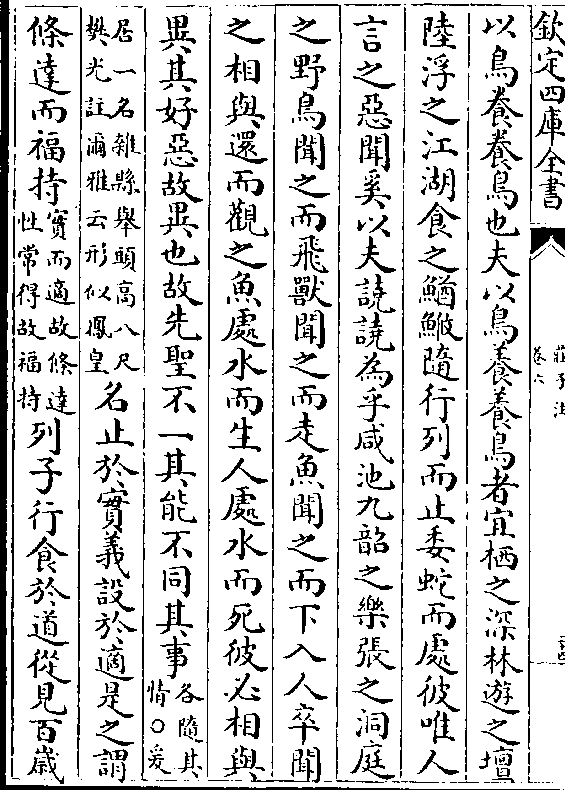 欽定四庫全書
莊子注
卷六
以鳥養養鳥也夫以鳥養養鳥者宜栖之深林遊之壇
陸浮之江湖食之鰌鰷隨行列而止委蛇而處彼唯人
言之惡聞奚以夫譊譊為乎咸池九韶之樂張之洞庭
之野鳥聞之而飛獸聞之而走魚聞之而下入人卒聞
之相與還而觀之魚處水而生人處水而死彼必相與
異其好惡故異也故先聖不一其能不同其事各隨其情○爰
居一名雜縣舉頭高八尺樊光註爾雅云形似鳳皇名止於實義設於適是之謂
條達而福持實而適故條達性常得故福持列子行食於道從見百歲